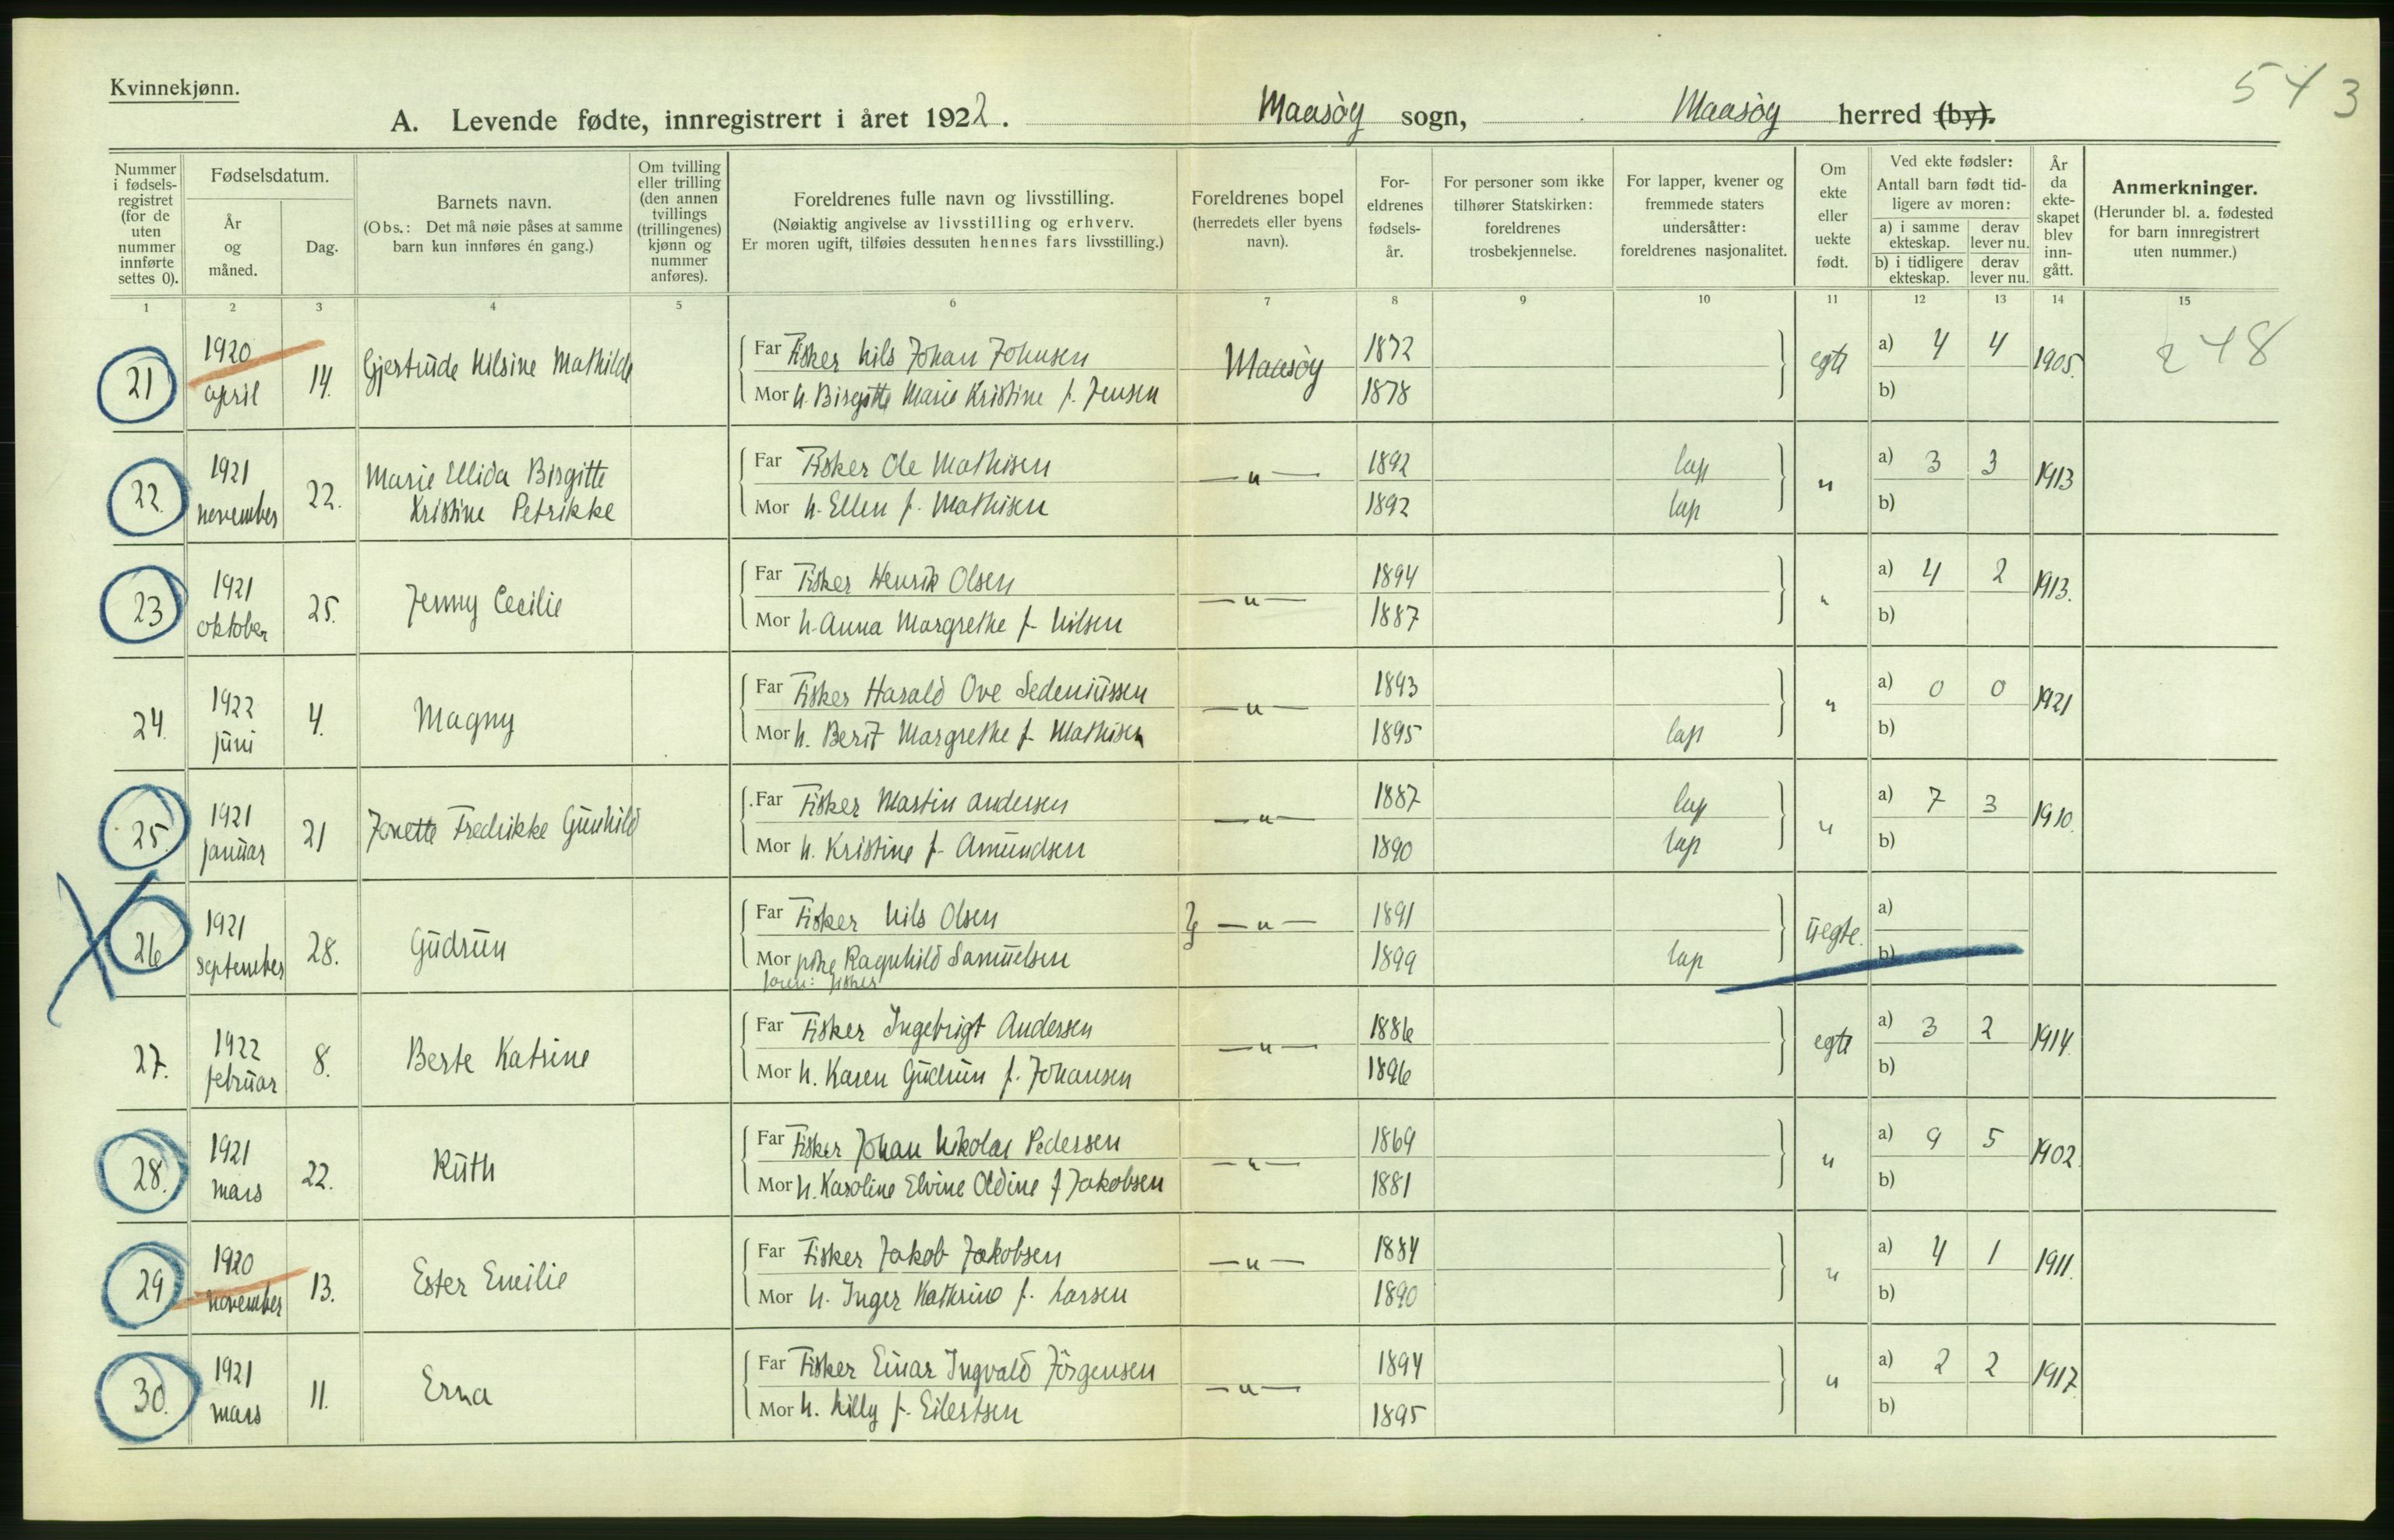 Kvinnekjønn.
543
A. Levende fødte, innregistrert i året 1922. Maasøy sogn, Maasøy herred (by).
Nummer i fødsels-registret (for de uten nummer innførte settes 0).
Fødselsdatum.
År og måned.
Dag.
Barnets navn.
(Obs.: Det må nøie påses at samme barn kun innføres én gang.)
Om tvilling eller trilling (den annen tvillings (trillingenes) kjønn og nummer anføres).
Foreldrenes fulle navn og livsstilling.
(Nøiaktig angivelse av livsstilling og erhverv.
Er moren ugift, tilføies dessuten hennes fars livsstilling.)
Foreldrenes bopel
(herredets eller byens navn).
For-eldrenes fødsels-år.
For personer som ikke tilhører Statskirken: foreldrenes trosbekjennelse.
For lapper, kvener og fremmede staters undersåtter: foreldrenes nasjonalitet.
Om ekte eller uekte født.
Ved ekte fødsler:
Antall barn født tid-ligere av moren:
a) i samme ekteskap.
derav lever nu.
b) i tidligere ekteskap.
derav lever nu.
År da ekte-skapet blev inn-gått.
Anmerkninger.
(Herunder bl. a. fødested for barn innregistrert uten nummer.)
1 2 3 4 5 6 7 8 9 10 11 12 13 14 15
21 1920 april 14. Gjertrude Nilsine Mathilde
Far Fisker Nils Johan Johnsen Maasøy 1872 egte a) 4 4 1905. 248
Mor h. Birgitte Marie Kristine f. Jensen 1878 b)
22. 1921 november 22. Marie Ellida Birgitte Kristine Petrikke
Far Fisker Ole Mathisen —"— 1892 lap " a) 3 3 1913
Mor h. Ellen f. Mathisen 1892 lap b)
23 1921 oktober 25. Jenny Cecilie
Far Fisker Henrik Olsen —"— 1894 " a) 4 2 1913.
Mor h. Anna Margrethe f. Nilsen 1887 b)
24. 1922 juni 4. Magny
Far Fisker Harald Ove Sedeniussen —"— 1893 " a) 0 0 1921
Mor h. Berit Margrethe f. Mathisen 1895 lap b)
25. 1921 januar 21 Jonette Fredrikke Gunhild
Far Fisker Martin Andersen —"— 1887 lap " a) 7 3 1910.
Mor h. Kristine f. Amundsen 1890 lap b)
26 1921 september 28. Gudrun
Far Fisker Nils Olsen —"— 1891 uegte. a)
Mor pike Ragnhild Samuelsen 1899 lap b)
faren: fisker
27. 1922 februar 8. Berte Katrine
Far Fisker Ingebrigt Andersen —"— 1886 egte a) 3 2 1914.
Mor h. Karen Gudrun f. Johansen 1896 b)
28. 1921 mars 22. Ruth
Far Fisker Johan Nikolai Pedersen —"— 1869 " a) 9 5 1902.
Mor h. Karoline Elvine Oldine f Jakobsen 1881 b)
29 1920 november 13. Ester Emilie
Far Fisker Jakob Jakobsen —"— 1884 " a) 4 1 1911.
Mor h. Inger Kathrine f. Larsen 1890 b)
30. 1921 mars 11. Erna
Far Fisker Einar Ingvald Jørgensen —"— 1894 " a) 2 2 1917
Mor h. Lilly f. Eilertsen 1895 b)